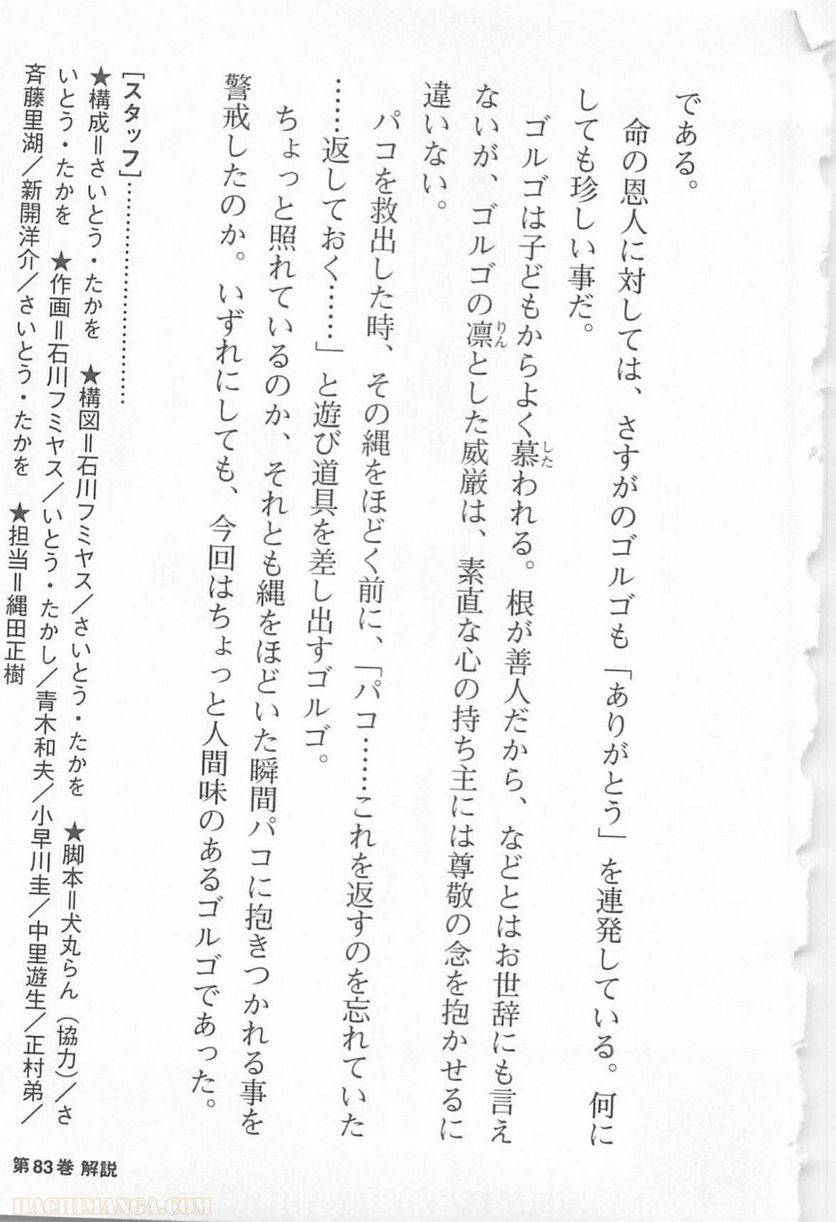 である。
命の恩人に対しては、さすがのゴルゴも「ありがとう」を連発している。何に
しても珍しい事だ。
ゴルゴは子どもからよく慕われる。根が善人だから、などとはお世辞にも言え
した
ないが、ゴルゴの凛とした威厳は、素直な心の持ち主には尊敬の念を抱かせるに
りん
違いない。
パコを救出した時、その縄をほどく前に、「パコ……これを返すのを忘れていた
……返しておく……」と遊び道具を差し出すゴルゴ。
ちょっと照れているのか、それとも縄をほどいた瞬間パコに抱きつかれる事を
警戒したのか。いずれにしても、今回はちょっと人間味のあるゴルゴであった。
[スタッフ]……………………………
★構成=さいとう・たかを ★構図=石川フミヤス/さいとう・たかを ★脚本=犬丸らん(協力)/さ
いとう・たかを ★作画=石川フミヤス/いとう・たかし/青木和夫/小早川圭/中里遊生/正村弟/
斉藤里湖/新開洋介/さいとう・たかを ★担当=縄田正樹
第83巻 解説
HACHIMANGA.COM